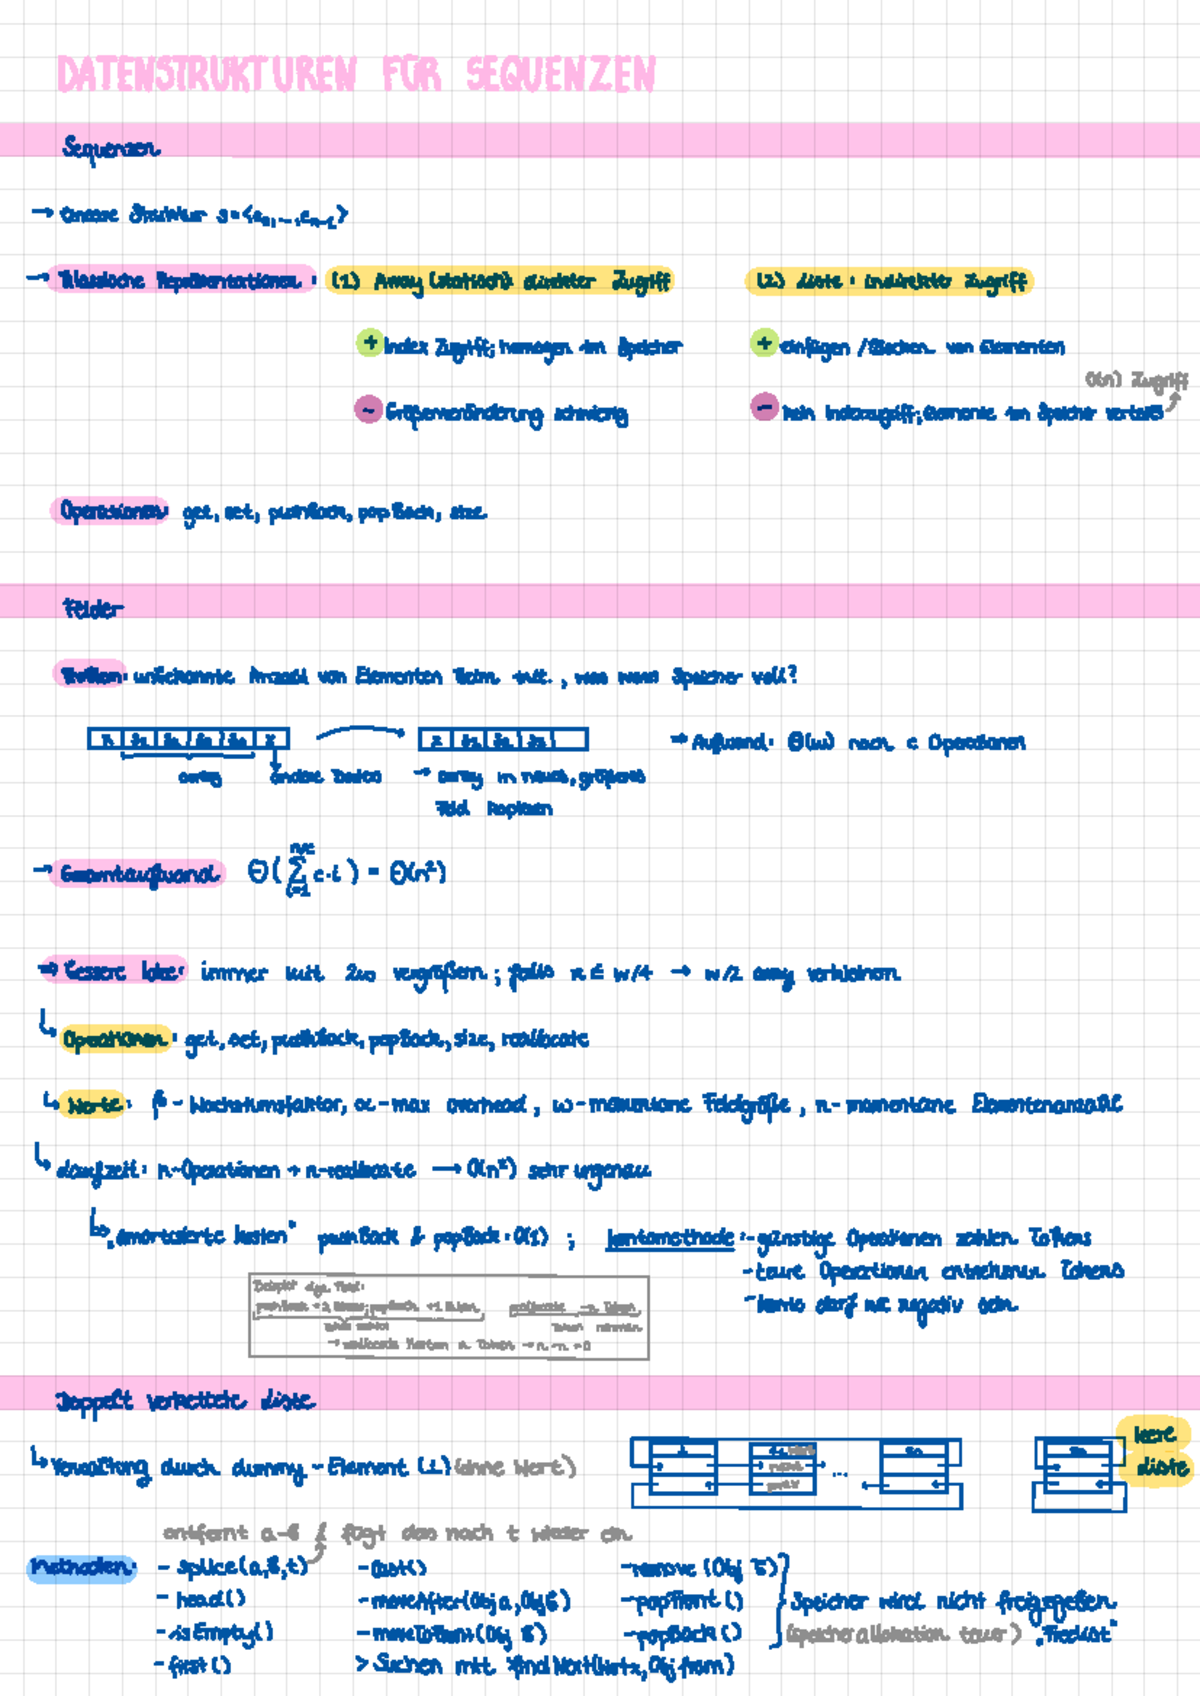 DATENSTRUKTUREN FÜR SEQUENZEN
Sequenzen
→ lineare Struktur s=<e₀,...,eₙ₋₁>
→ klassische Repräsentationen: (1) Array (statisch): direkter Zugriff (2) Liste: indirekter Zugriff
+ Index Zugriff; homogen im Speicher + einfügen / löschen von Elementen
O(n) Zugriff
- Größenveränderung schwierig - kein Indexzugriff; Elemente im Speicher verteilt
Operationen: get, set, pushBack, popBack, size
Felder
unbekannte Anzahl von Elementen beim Init., was wenn Speicher voll?
array andere Daten → array in neues, größeres
Feld kopieren
→ Aufwand: Θ(w) nach c Operationen
→ Gesamtaufwand Θ(∑ c·i) = Θ(n²)
⇒ Bessere Idee: immer mit 2w vergrößern; falls n ≤ w/4 → w/2 array verkleinern
↳ Operationen: get, set, pushBack, popBack, size, reallocate
↳ Werte: β - Wachstumsfaktor, α - max overhead, w - momentane Feldgröße, n - momentane Elementenanzahl
↳ Laufzeit: n-Operationen + n-reallocate → O(n²) sehr ungenau
↳ "amortisierte Kosten" pushBack & popBack: O(1) ; Kontomethode: - günstige Operationen zahlen Tokens
- teure Operationen entnehmen Tokens
- Konto darf nie negativ sein
Beispiel dyn. Feld:
→ reallocate kosten n Token → n - n = 0
Doppelt verkettete Liste
↳ Verwaltung durch dummy-Element (⊥) (ohne Wert)
leere
Liste
entfernt a-b & fügt das nach t wieder ein
Methoden: - splice(a,b,t) - last() - remove (Obj b)
- head() - moveAfter(Obj a, Obj b) - popFront () Speicher wird nicht freigegeben
- isEmpty() - moveToFront(Obj b) - popBack () (Speicherallokation teuer) "Freelist"
- first() > Suchen mit findNext(Wert x, Obj from)